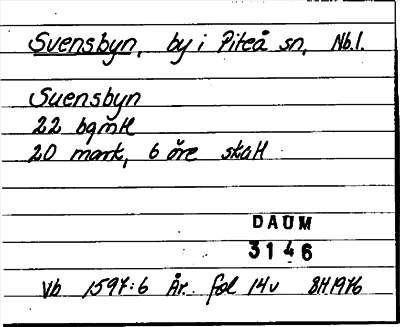 Svensbyn, by i Piteå sn, Nb.l.
Suensbyn
22 bgmtl
20 mark, 6 öre skatt
DAUM
3146
Vb 1597:6 År. fol 14v BH 1976